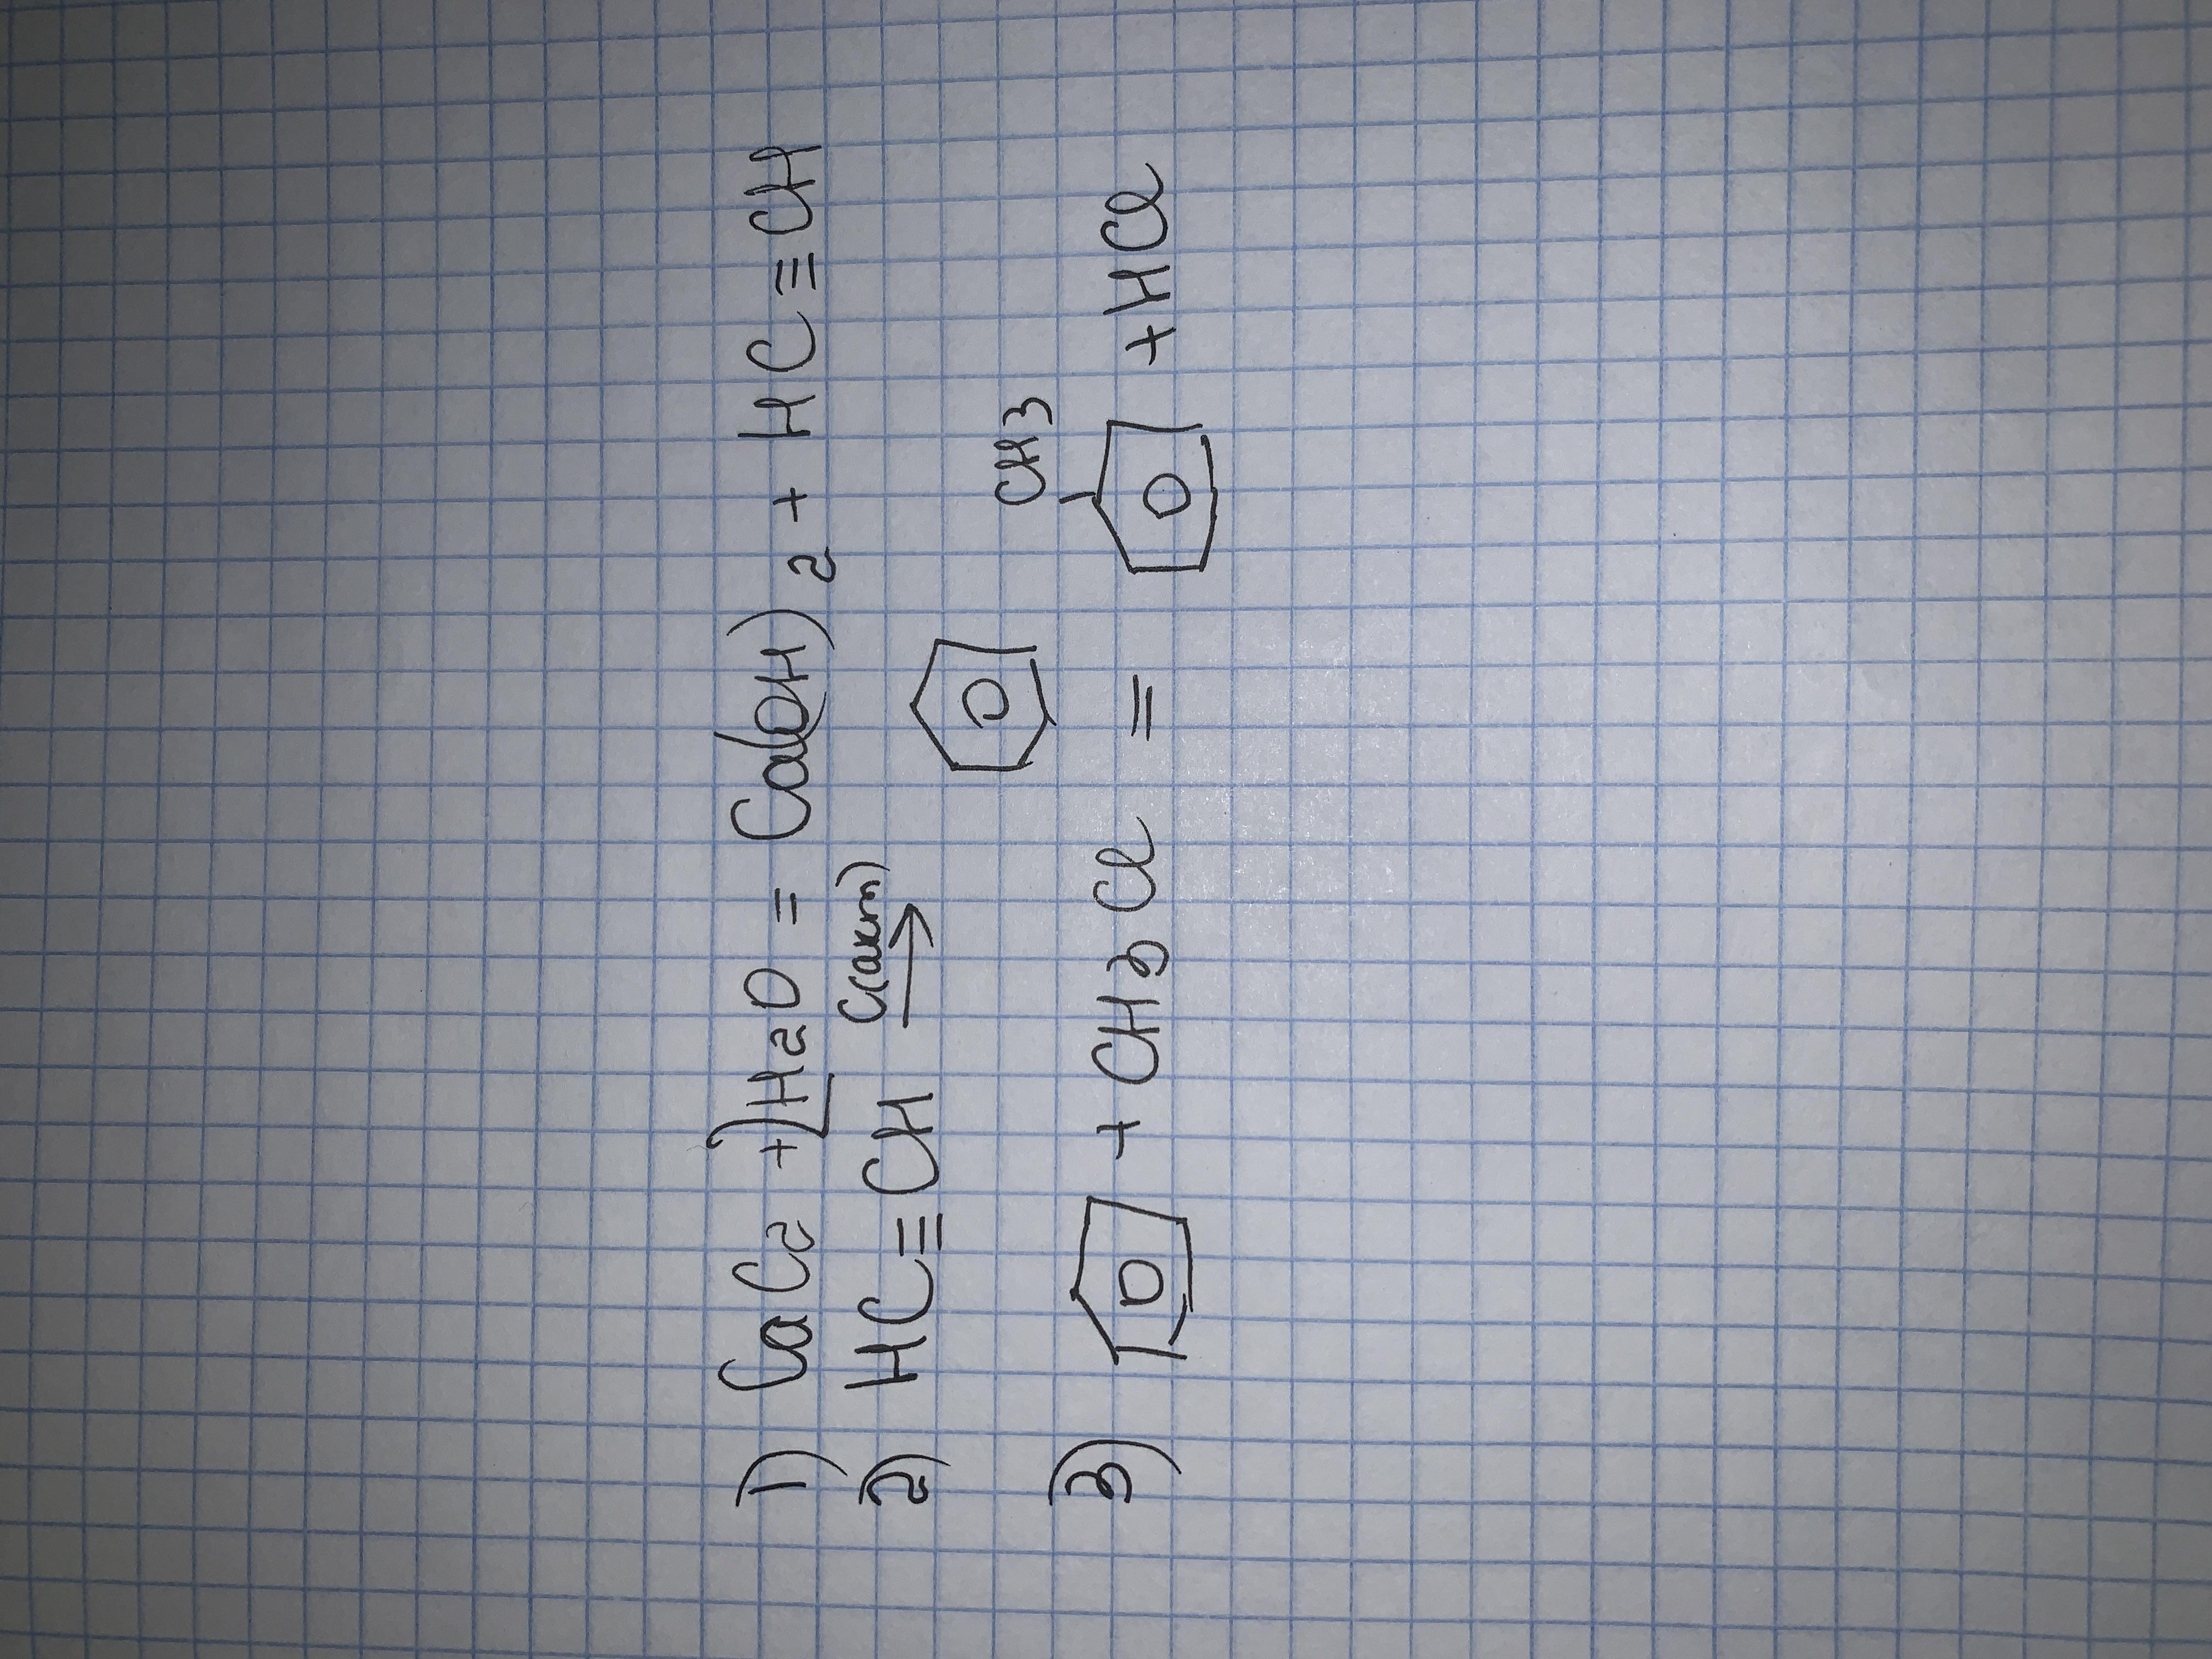 1) CaC2 + 2H2O = Ca(OH)2 + HC≡CH
2) HC≡CH C(акт) →
3) + CH3Cl = CH3 + HCl